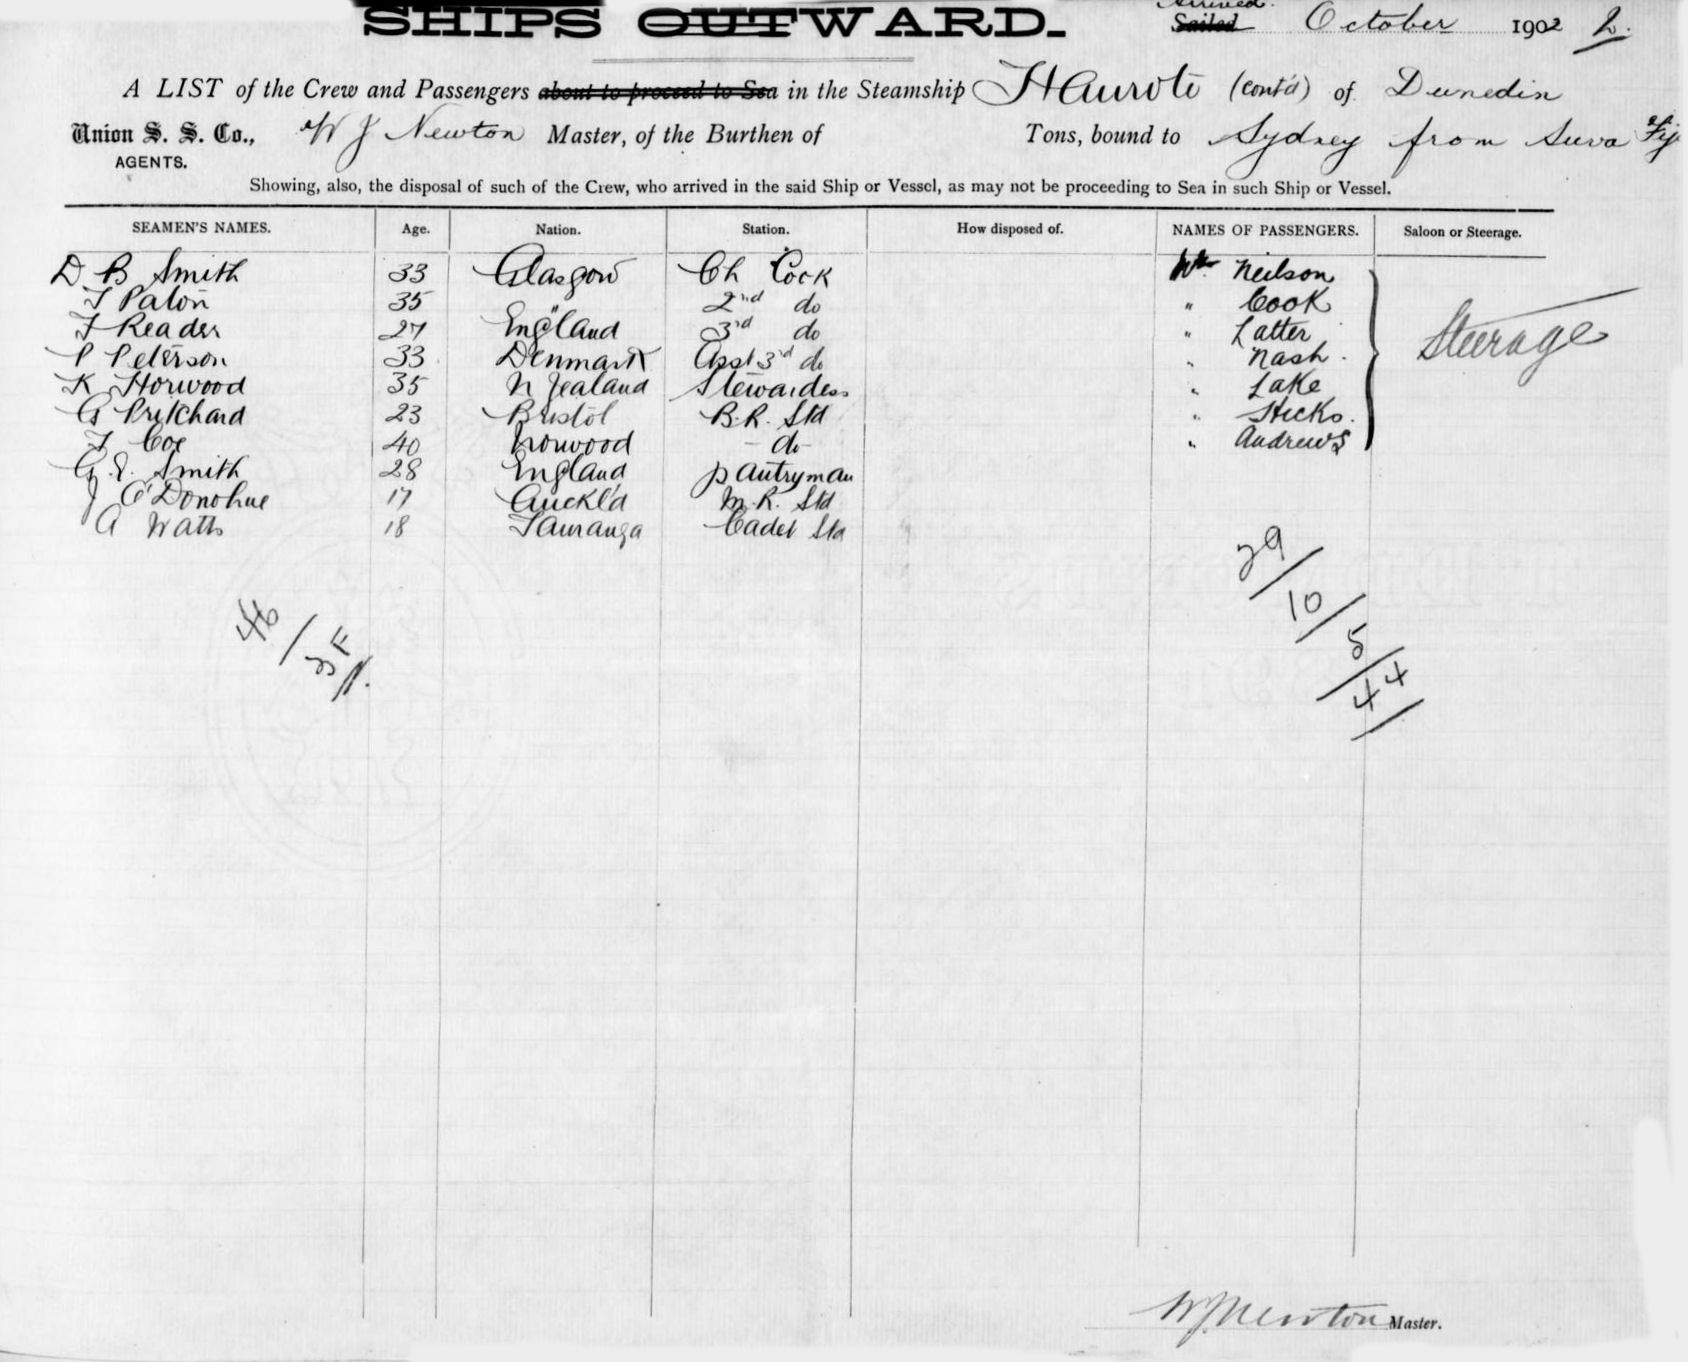 SHIPS OUTWARD.
Arrived.
Sailed October 1902 2.
A LIST of the Crew and Passengers about to proceed to Sea in the Steamship Hauroto (Contd) of Dunedin
Union S. S. Co., W J Newton Master, of the Burthen of Tons, bound to Sydney from Suva Fiji
AGENTS.
Showing, also, the disposal of such of the Crew, who arrived in the said Ship or Vessel, as may not be proceeding to Sea in such Ship or Vessel.
SEAMEN'S NAMES. Age. Nation. Station. How disposed of. NAMES OF PASSENGERS. Saloon or Steerage.
D B Smith 33 Glasgow Ch Cook Mr Neilson
Paton 35 " 2nd do " Cook
Reader 27 England 3rd do " Latter
P Peterson 33 Denmark Asst 3rd do " Nash
K Horwood 35 N Zealand Stewardess " Lake
G Pritchard 23 Bristol B.R. Std " Hicks.
Coe 40 Norwood do " Andrews
Steerage
G. E. Smith 28 England Pantryman
J O'Donohue 17 Auckl'd M.R. Std
A Watts 18 Tauranga Cadet Std
29/10/5/44/
46/
W J Newton Master.